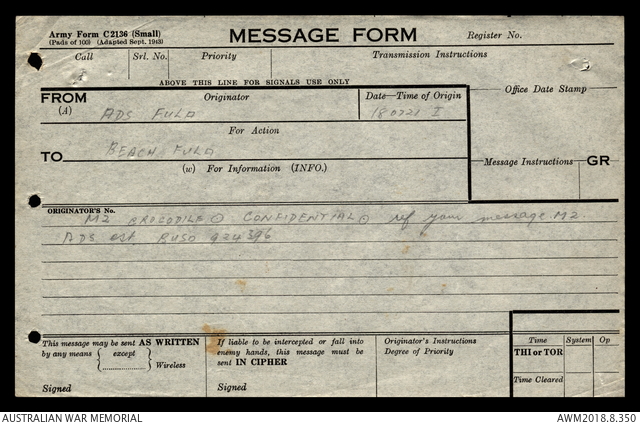 Army Form C2136 (Small)
(Pads of 100) (Adapted Sept. 1943)
MESSAGE FORM
Register No.
Call Srl. No. Priority Transmission Instructions
ABOVE THIS LINE FOR SIGNALS USE ONLY
FROM Originator Date—Time of Origin Office Date Stamp
(A) ADS FULD 180721 I
For Action
TO BEACH FULD
(w) For Information (INFO.) Message Instructions GR
ORIGINATOR'S No.
M2 CROCODILE CONFIDENTIAL ref your message M2
ADS est. RUSO 924396
This message may be sent AS WRITTEN
by any means except
Wireless
Signed
If liable to be intercepted or fall into
enemy hands, this message must be
sent IN CIPHER
Signed
Originator's Instructions
Degree of Priority
Time System Op
THI or TOR
Time Cleared
AUSTRALIAN WAR MEMORIAL AWM2018.8.350